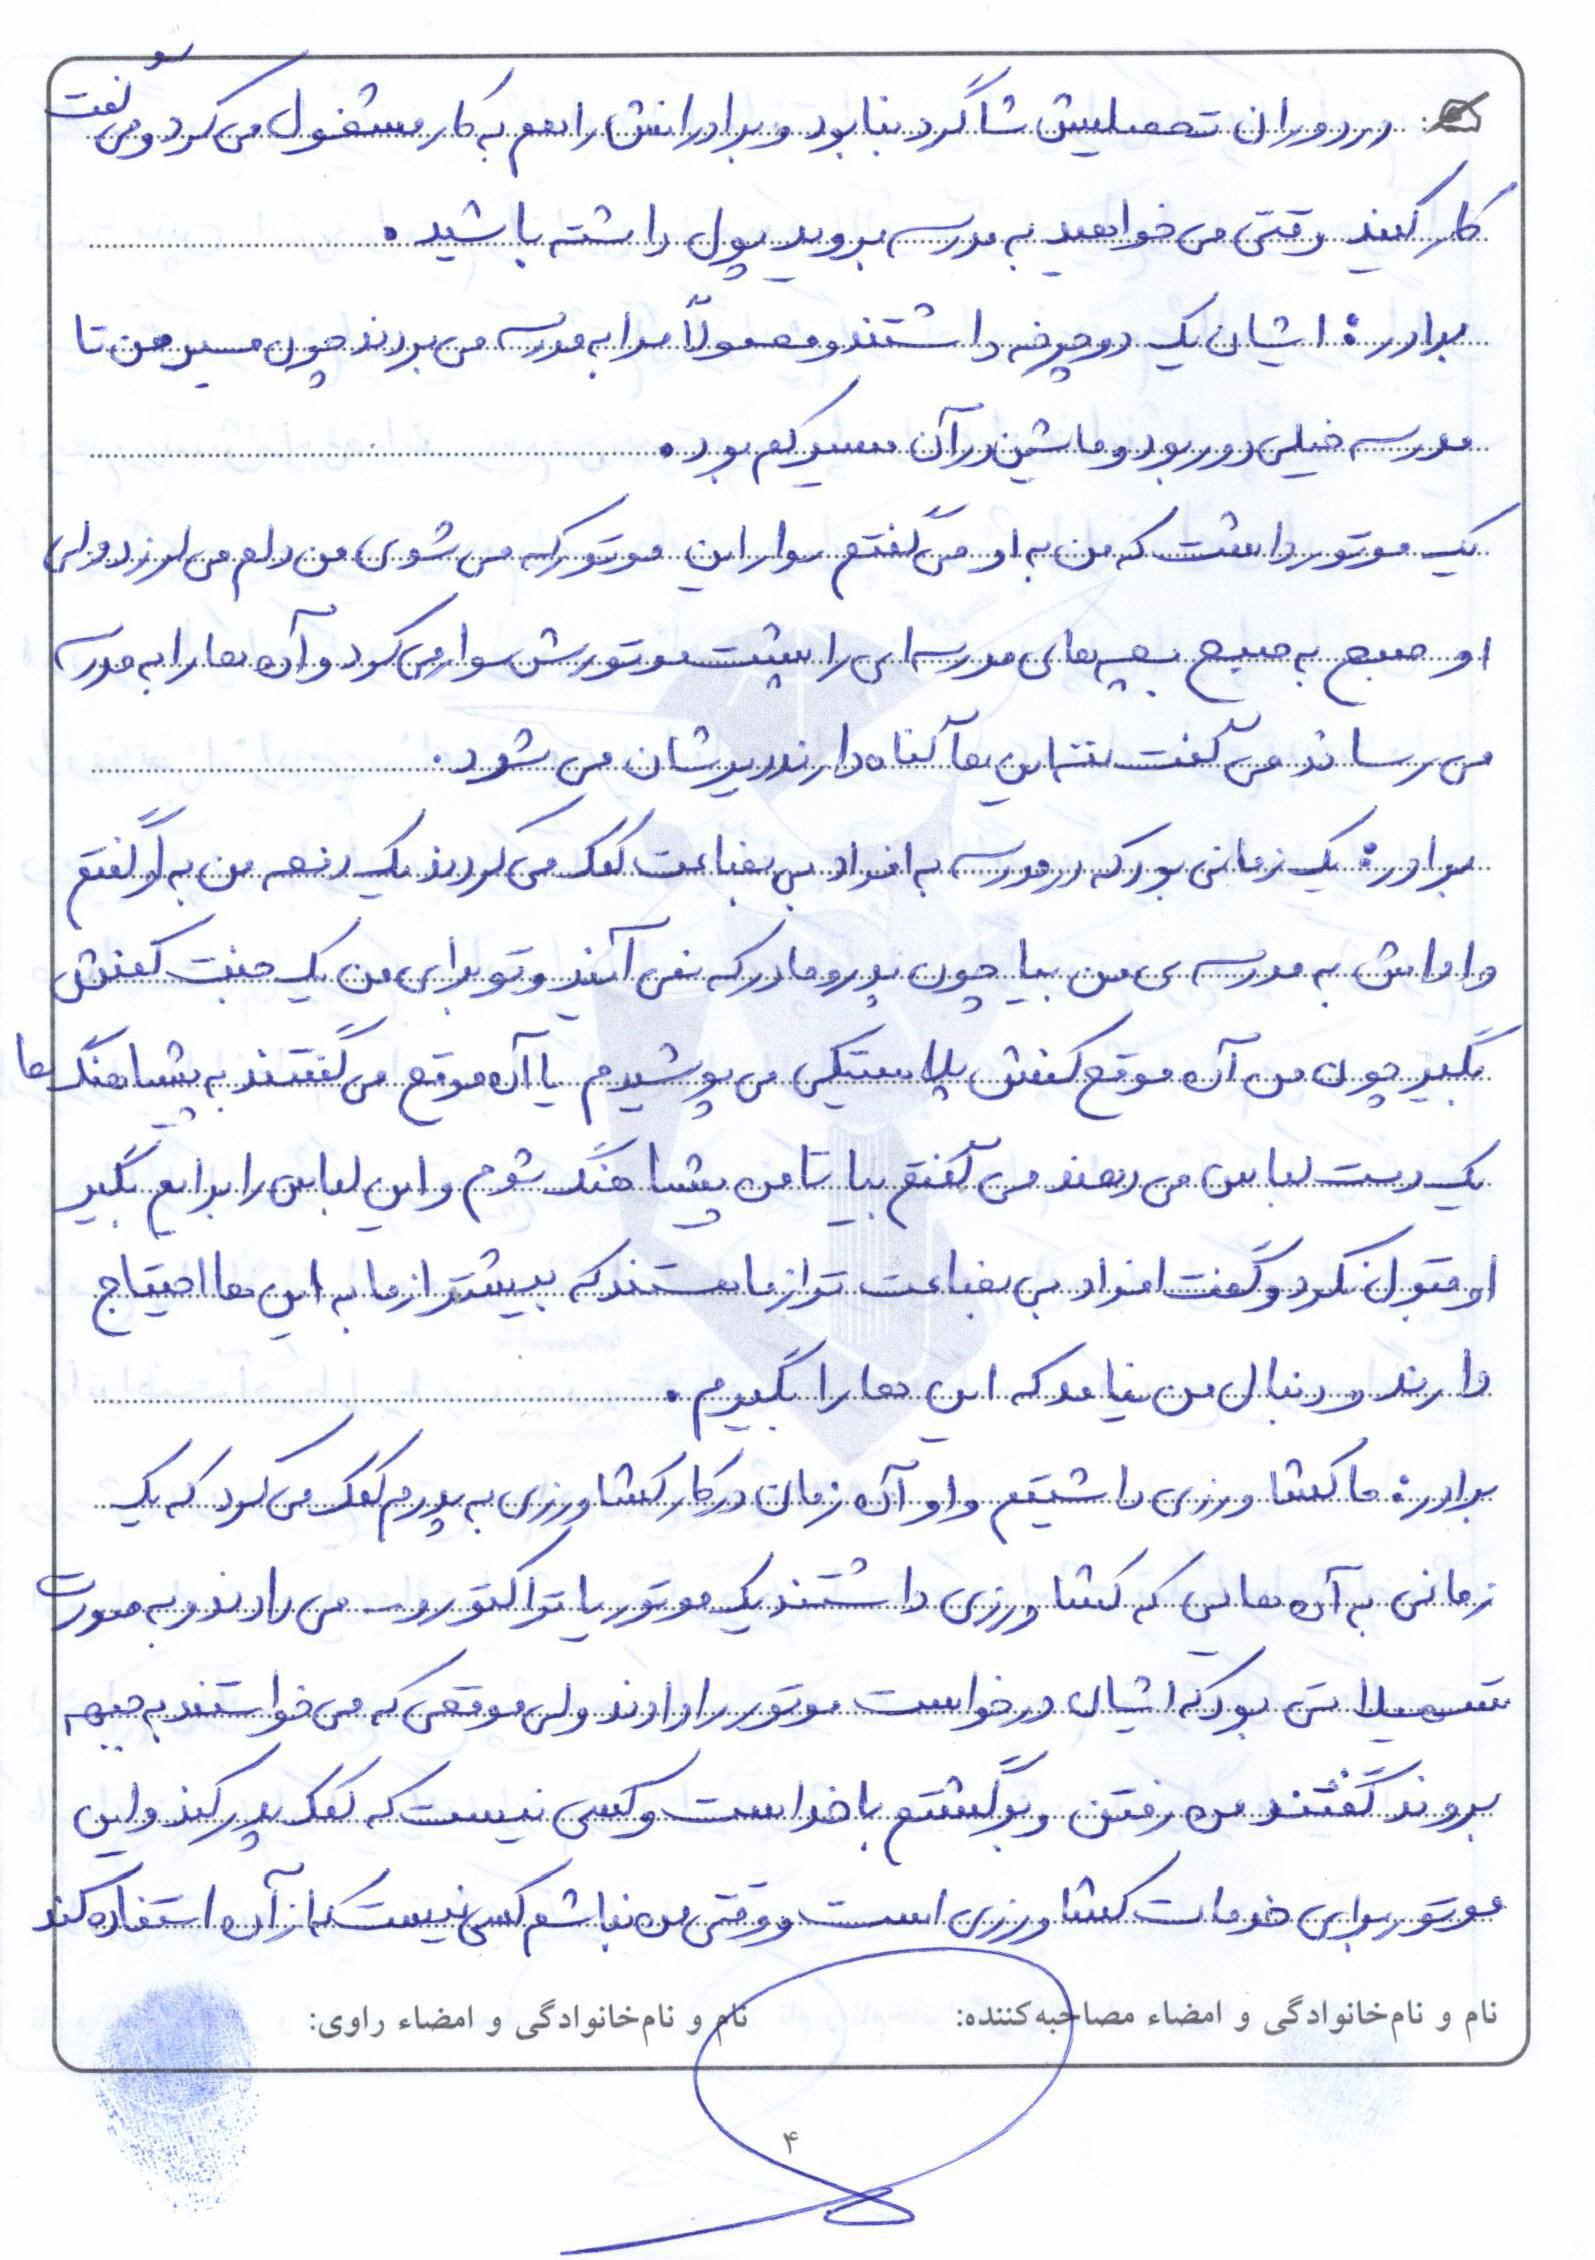 در دوران تحصیلیش شاگرد بنا بود و برادرانش را هم به کار مشغول می کرد و می گفت
کار کنید وقتی می خواهید به مدرسه بروید پول داشته باشید.
برادر: ایشان یک دوچرخه داشتند و معمولاً مرا به مدرسه می بردند چون مسیر من تا
مدرسه خیلی دور بود و ماشین در آن مسیر کم بود.
یک موتور داشت که من به او می گفتم سوار این موتور که می شوی من دلم می لرزد ولی
او صبح به صبح بچه های مدرسه ای را پشت موتورش سوار می کرد و آن ها را به مدرسه
می رساند می گفت ننه این ها گناه دارند دیرشان می شود.
برادر: یک زمانی بود که در مدرسه به افراد بی بضاعت کمک می کردند یک دفعه من به او گفتم
داداش به مدرسه ی من بیا چون پدر و مادر که نمی آیند و تو برای من یک جفت کفش
بگیر چون من آن موقع کفش پلاستیکی می پوشیدم یا آن موقع می گفتند به پیشاهنگ ها
یک دست لباس می دهند می گفتم بیا تا من پیشاهنگ شوم و این لباس را برایم بگیر
او قبول نکرد و گفت افراد بی بضاعت تر از ما هستند که بیشتر از ما به این ها احتیاج
دارند و دنبال من نیامد که این ها را بگیرم.
برادر: ما کشاورزی داشتیم و او آن زمان در کار کشاورزی به پدرم کمک می کرد که یک
زمانی به آن هایی که کشاورزی داشتند یک موتور یا تراکتور و... می دادند و به صورت
تسهیلاتی بود که ایشان درخواست موتور را دادند ولی موقعی که می خواستند به جبهه
بروند گفتند من رفتن و برگشتم با خداست و کسی نیست که کمک پدر کند و این
موتور برای خدمات کشاورزی است و وقتی من نباشم کسی نیست که از آن استفاده کند
نام و نام‌خانوادگی و امضاء مصاحبه‌کننده: نام و نام‌خانوادگی و امضاء راوی:
۴